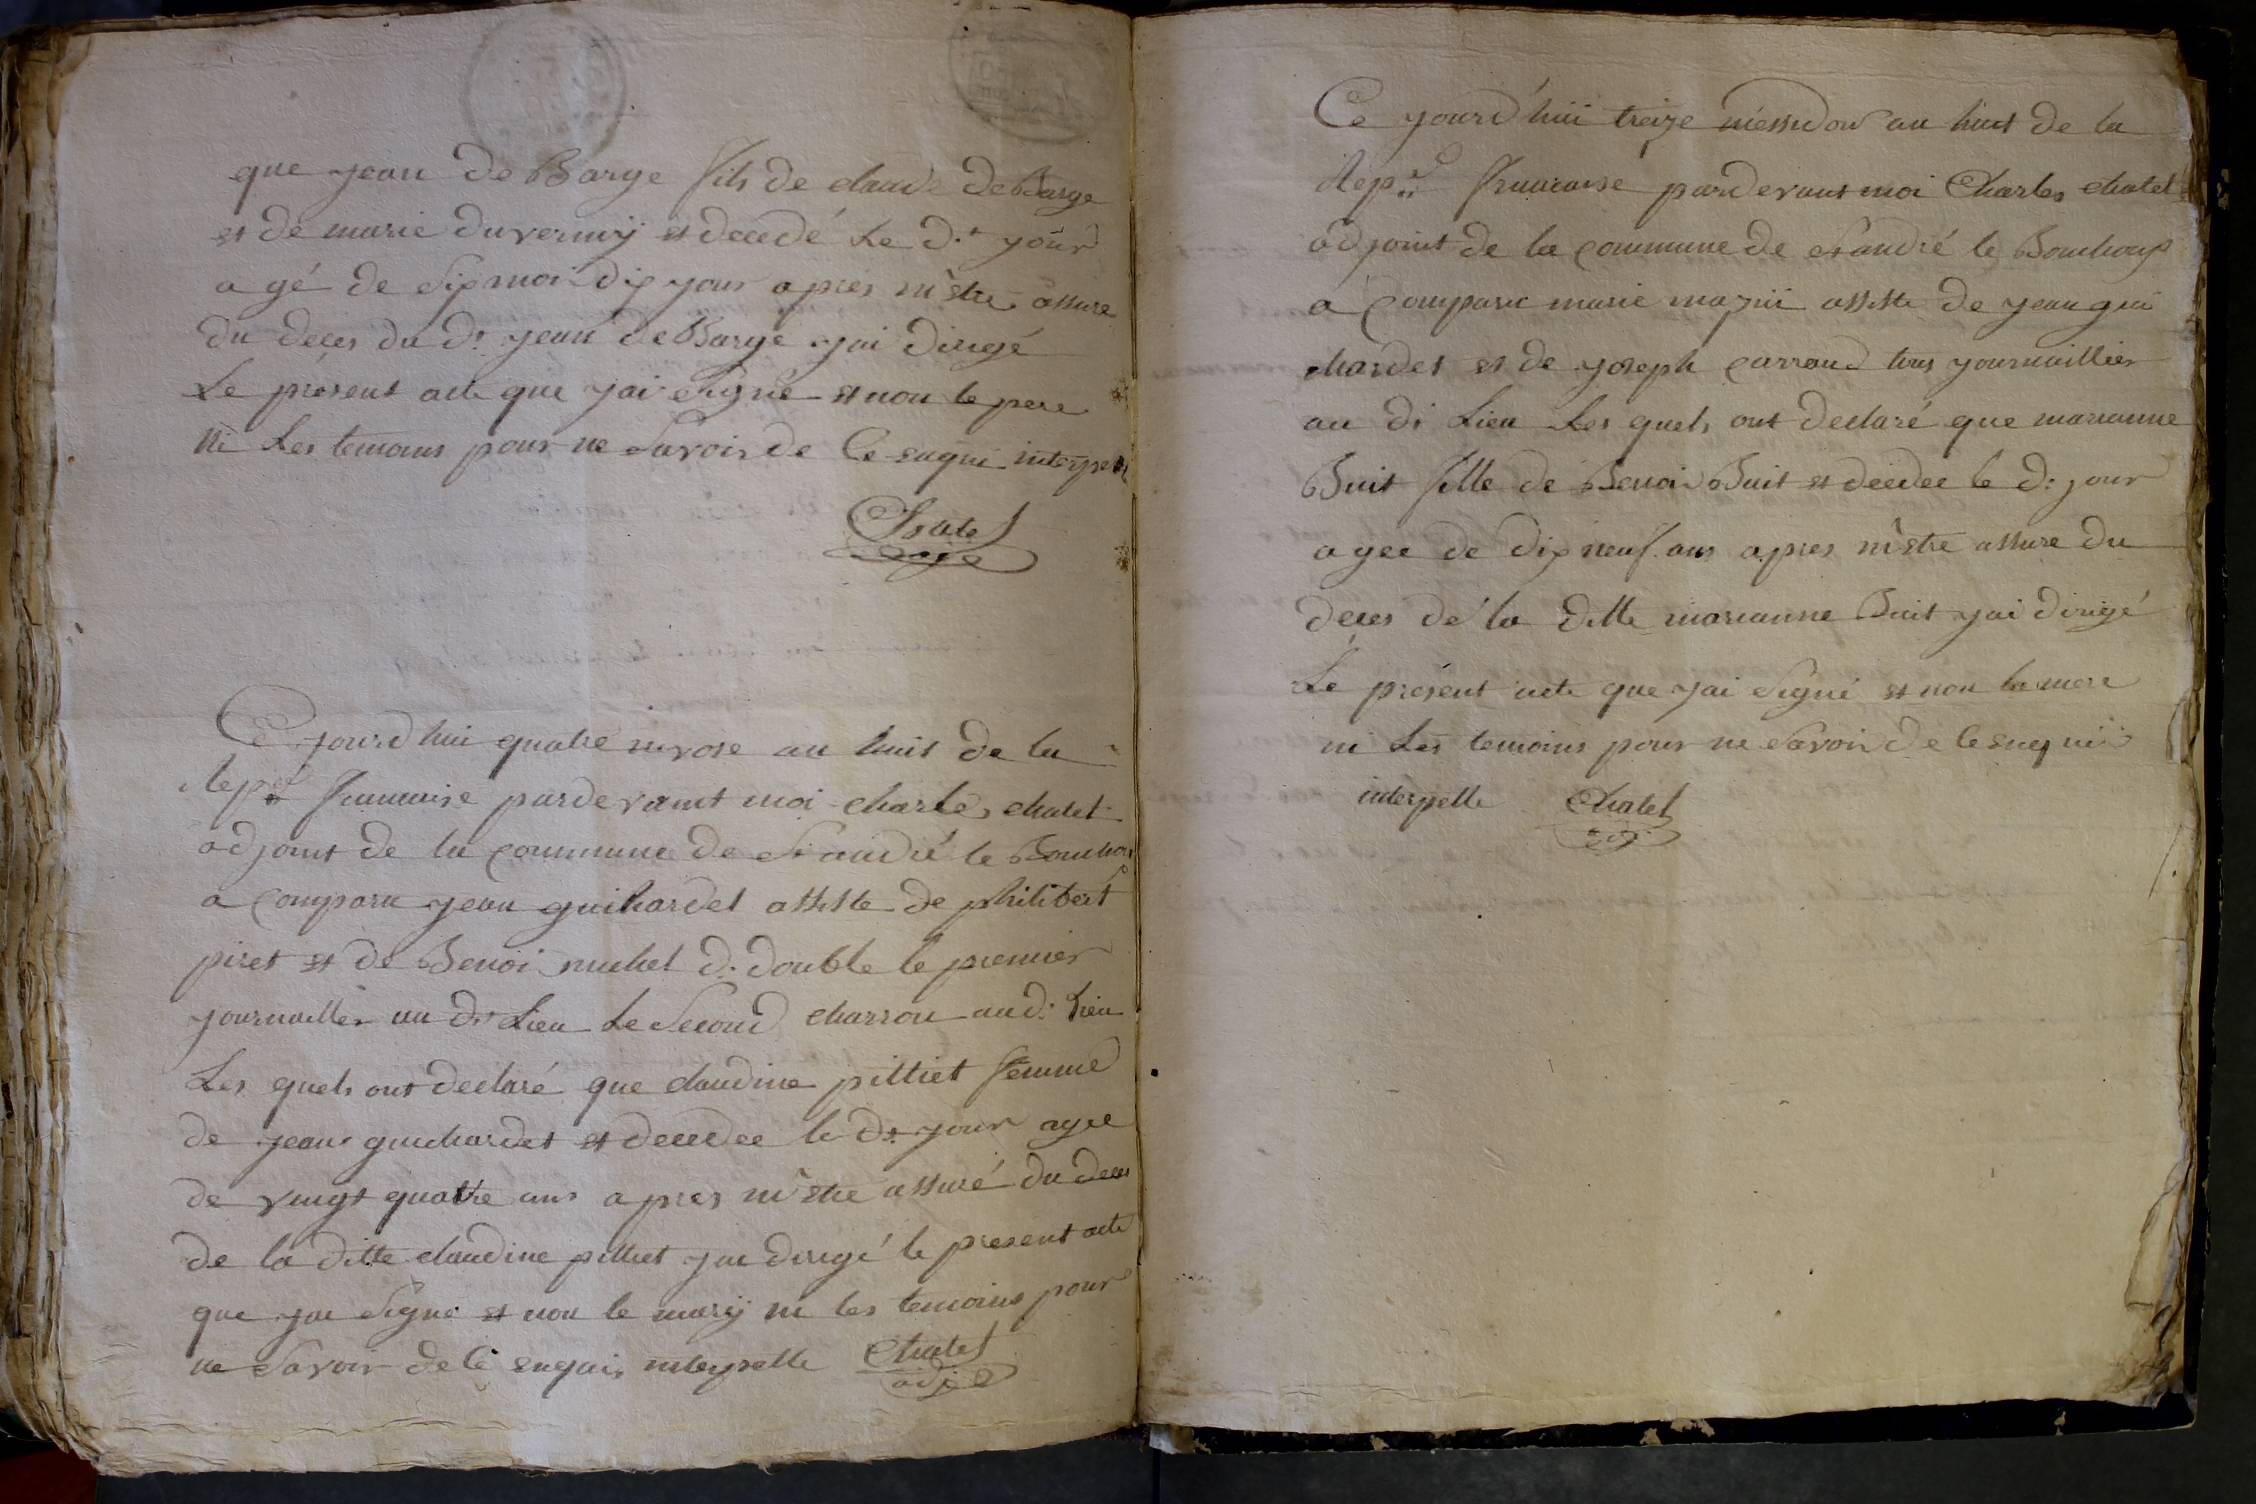 que jean deBarge fils de claude deBarge
et de marie duverniÿ et decedé Le d.t jour
agé de Six moi dix jour apres m'etre assure
du deces du d.t jean deBarge jai dirigé
Le présent acte que jai Signé et non le pere
ni Les temoins pour ne Savoir de Ce enqui interpelé
Chatel
adj
Ce jourd'hui quatre nivose an huit de la
Rep.e francaise pardevant moi charles chatel
adjoint de la commune de St andré le Bouchou
x
a comparu jean guichardet assiste de philibert
piret et de Benoi michel d. double le premier
journallier au d.t Lieu Le Second charron au d. Lieu
Les quels ont declaré que claudine pilliet femme
de jean guichardet et decedee le d.t jour agee
de vingt quatre ans apres m'etre assuré du deces
de la ditte claudine pilliet jai dirigé le present acte
que jai Signé et non le mariÿ ni les temoins pour
ne Savoir de Ce enquis interpelle Chatel
adj
Ce jourd'huii treize messidor an huit de la
Rep.e francaise pardevant moi Charles chatel
adjoint de la commune de St andré le Bouchoux
a comparu marie assiste de jean gui
chardet et de joseph carraud tous journaillier
au di Lieu Les quels ont declaré que marianne
Buit fille de Benoi Buit et decedee le d. jour
agee de dix neuf ans apres m'etre assure du
deces de la ditte marianne Buit jai dirigé
Le présent acte que jai Signé et non la mere
ni Les temoins pour ne Savoir de Ce enquii
interpelle Chatel
adj